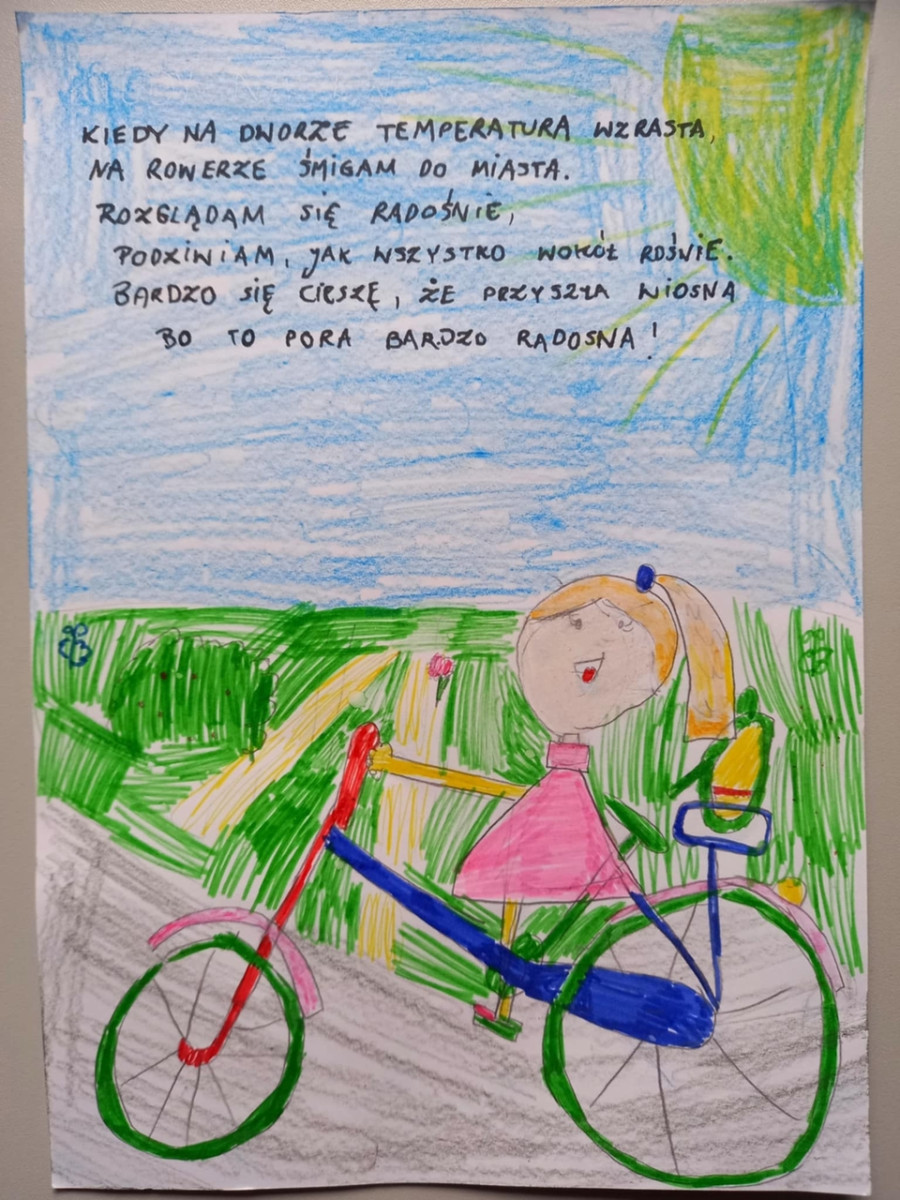 KIEDY NA DWORZE TEMPERATURA WZRASTA,
NA ROWERZE ŚMIGAM DO MIASTA.
ROZGLĄDAM SIĘ RADOŚNIE,
PODZIWIAM, JAK WSZYSTKO WOKÓŁ ROŚNIE.
BARDZO SIĘ CIESZĘ, ŻE PRZYSZŁA WIOSNA
BO TO PORA BARDZO RADOSNA!